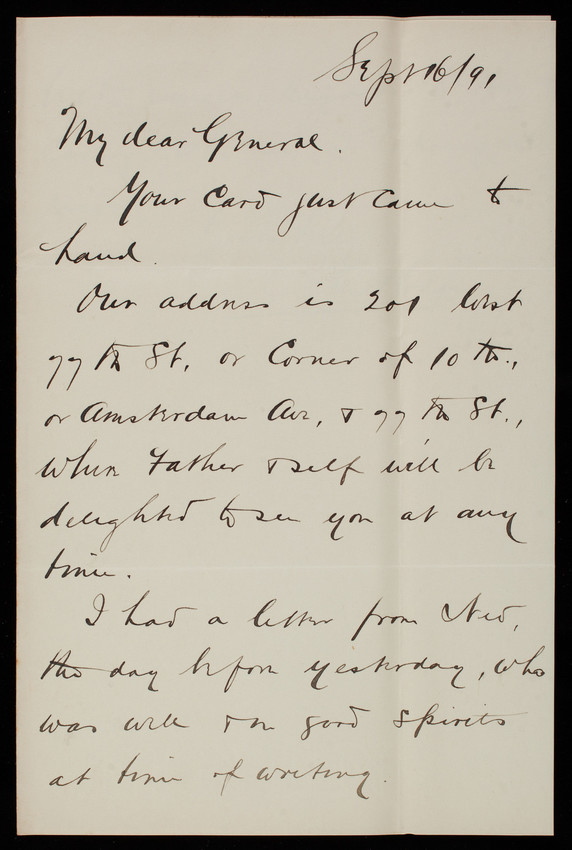 Sept 16/91
My dear General.
Your Card just came to
hand.
Our address is 201 West
77 th St, or Corner of 10 th.,
or Amsterdam Ave, & 77 th St.,
when Father & self will be
delighted to see you at any
time.
I had a letter from Ned,
the day before yesterday, who
was well & in good spirits
at time of writing.